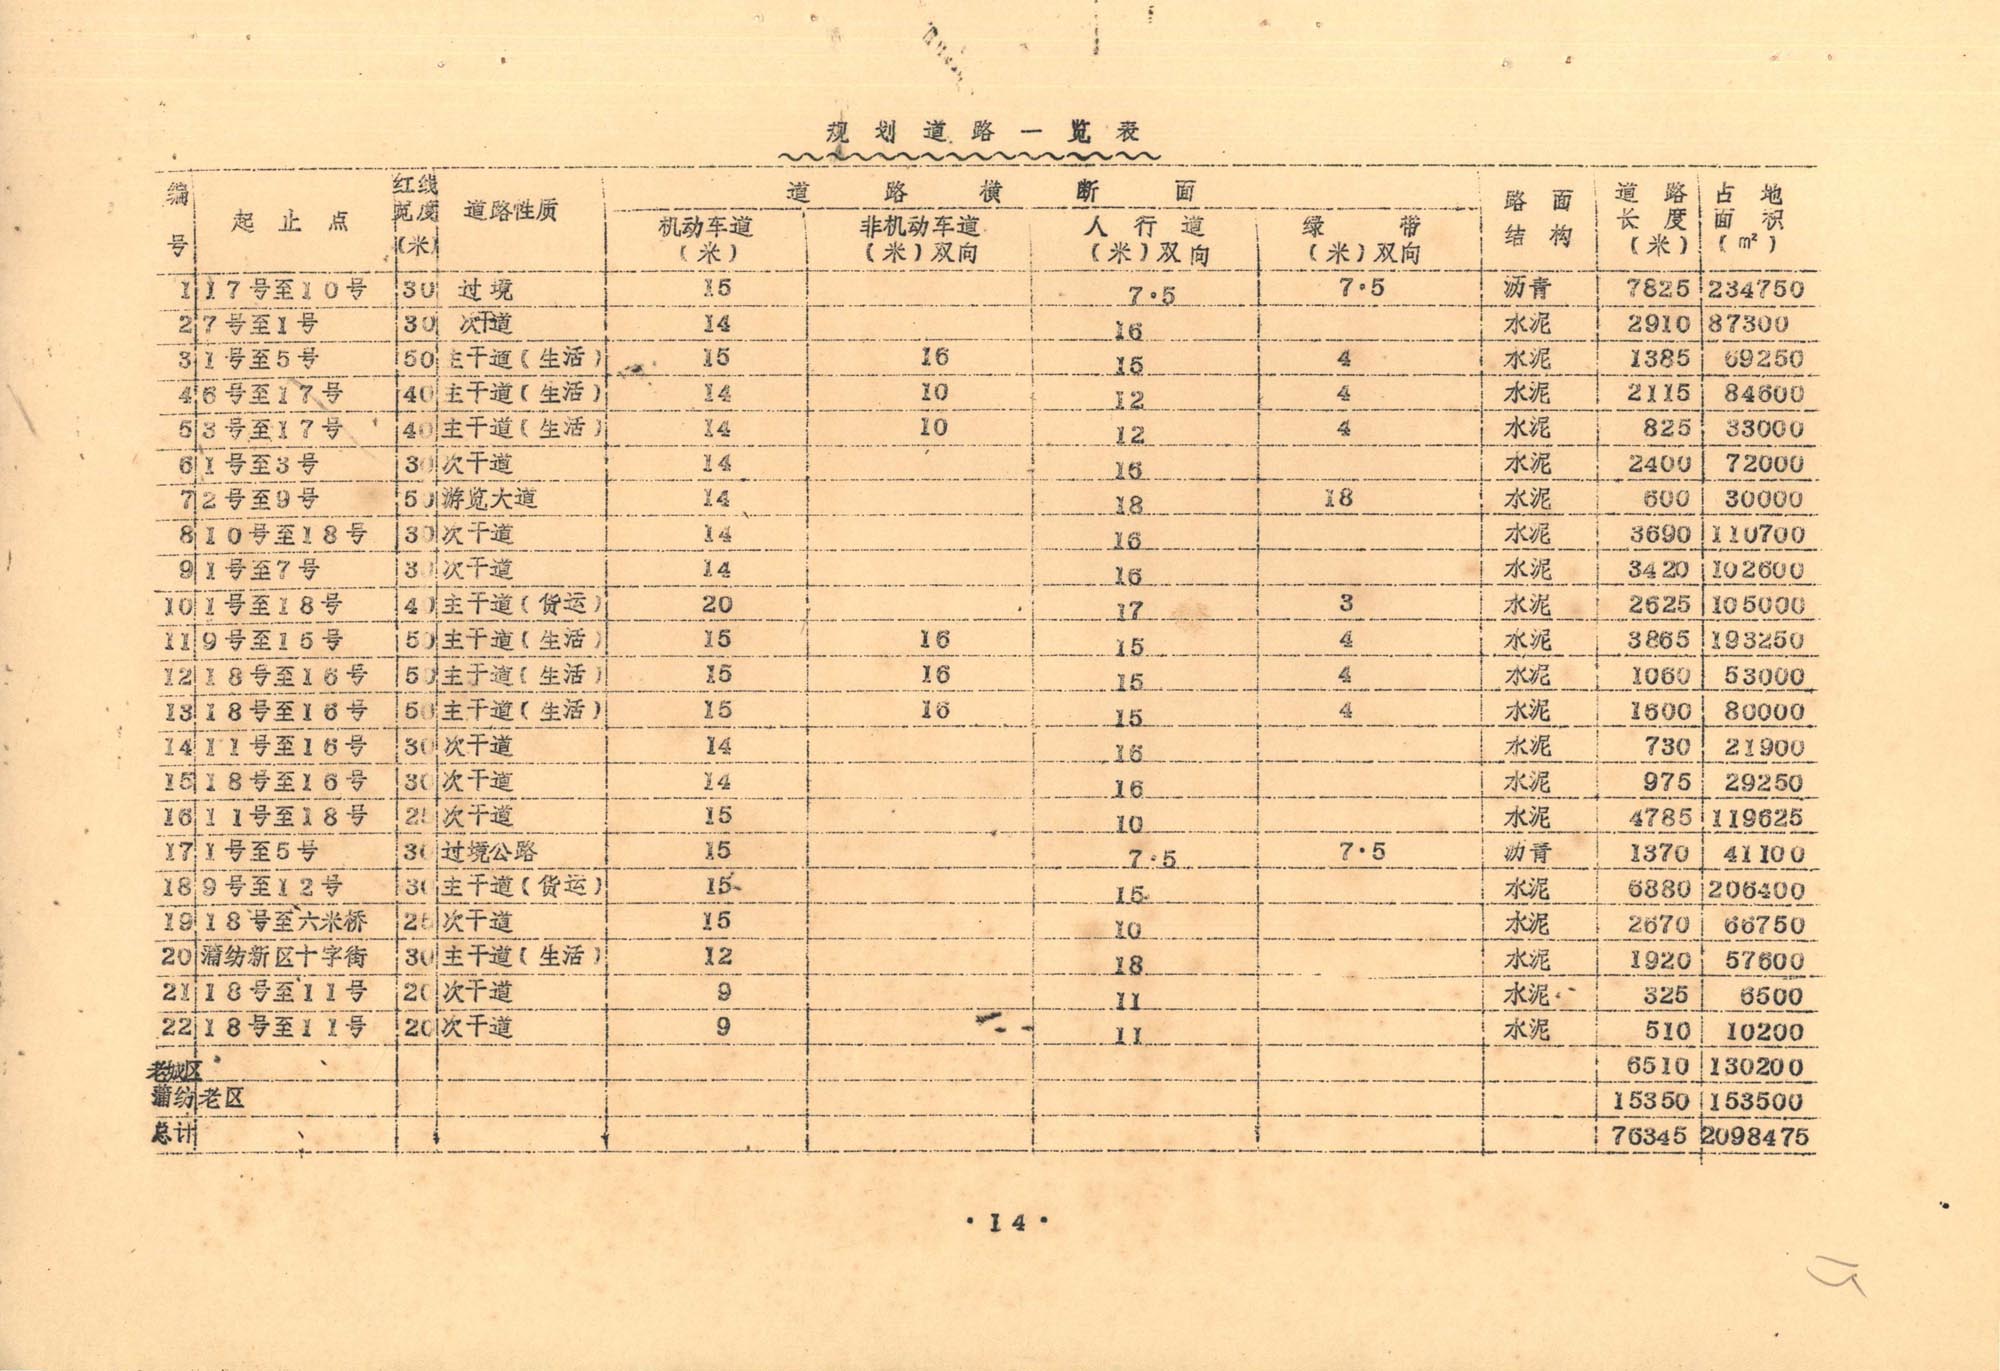 规划道路一览表
编号 起止点 红线宽度(米) 道路性质 道路横断面 路面结构 道路长度(米) 占地面积(㎡)
机动车道(米) 非机动车道(米)双向 人行道(米)双向 绿带(米)双向
1 17号至10号 30 过境 15 7·5 7·5 沥青 7825 234750
2 7号至1号 30 次干道 14 16 水泥 2910 87300
3 1号至5号 50 主干道(生活) 15 16 15 4 水泥 1385 69250
4 6号至17号 40 主干道(生活) 14 10 12 4 水泥 2115 84600
5 3号至17号 40 主干道(生活) 14 10 12 4 水泥 825 33000
6 1号至3号 30 次干道 14 16 水泥 2400 72000
7 2号至9号 50 游览大道 14 18 18 水泥 600 30000
8 10号至18号 30 次干道 14 16 水泥 3690 110700
9 1号至7号 30 次干道 14 16 水泥 3420 102600
10 1号至18号 40 主干道(货运) 20 17 3 水泥 2625 105000
11 9号至15号 50 主干道(生活) 15 16 15 4 水泥 3865 193250
12 18号至16号 50 主干道(生活) 15 16 15 4 水泥 1060 53000
13 18号至16号 50 主干道(生活) 15 16 15 4 水泥 1600 80000
14 11号至16号 30 次干道 14 16 水泥 730 21900
15 18号至16号 30 次干道 14 16 水泥 975 29250
16 11号至18号 25 次干道 15 10 水泥 4785 119625
17 1号至5号 30 过境公路 15 7·5 7·5 沥青 1370 41100
18 9号至12号 30 主干道(货运) 15 15 水泥 6880 206400
19 18号至六米桥 25 次干道 15 10 水泥 2670 66750
20 蒲纺新区十字街 30 主干道(生活) 12 18 水泥 1920 57600
21 18号至11号 20 次干道 9 11 水泥 325 6500
22 18号至11号 20 次干道 9 11 水泥 510 10200
老城区 6510 130200
蒲纺老区 15350 153500
总计 76345 2098475
·14·